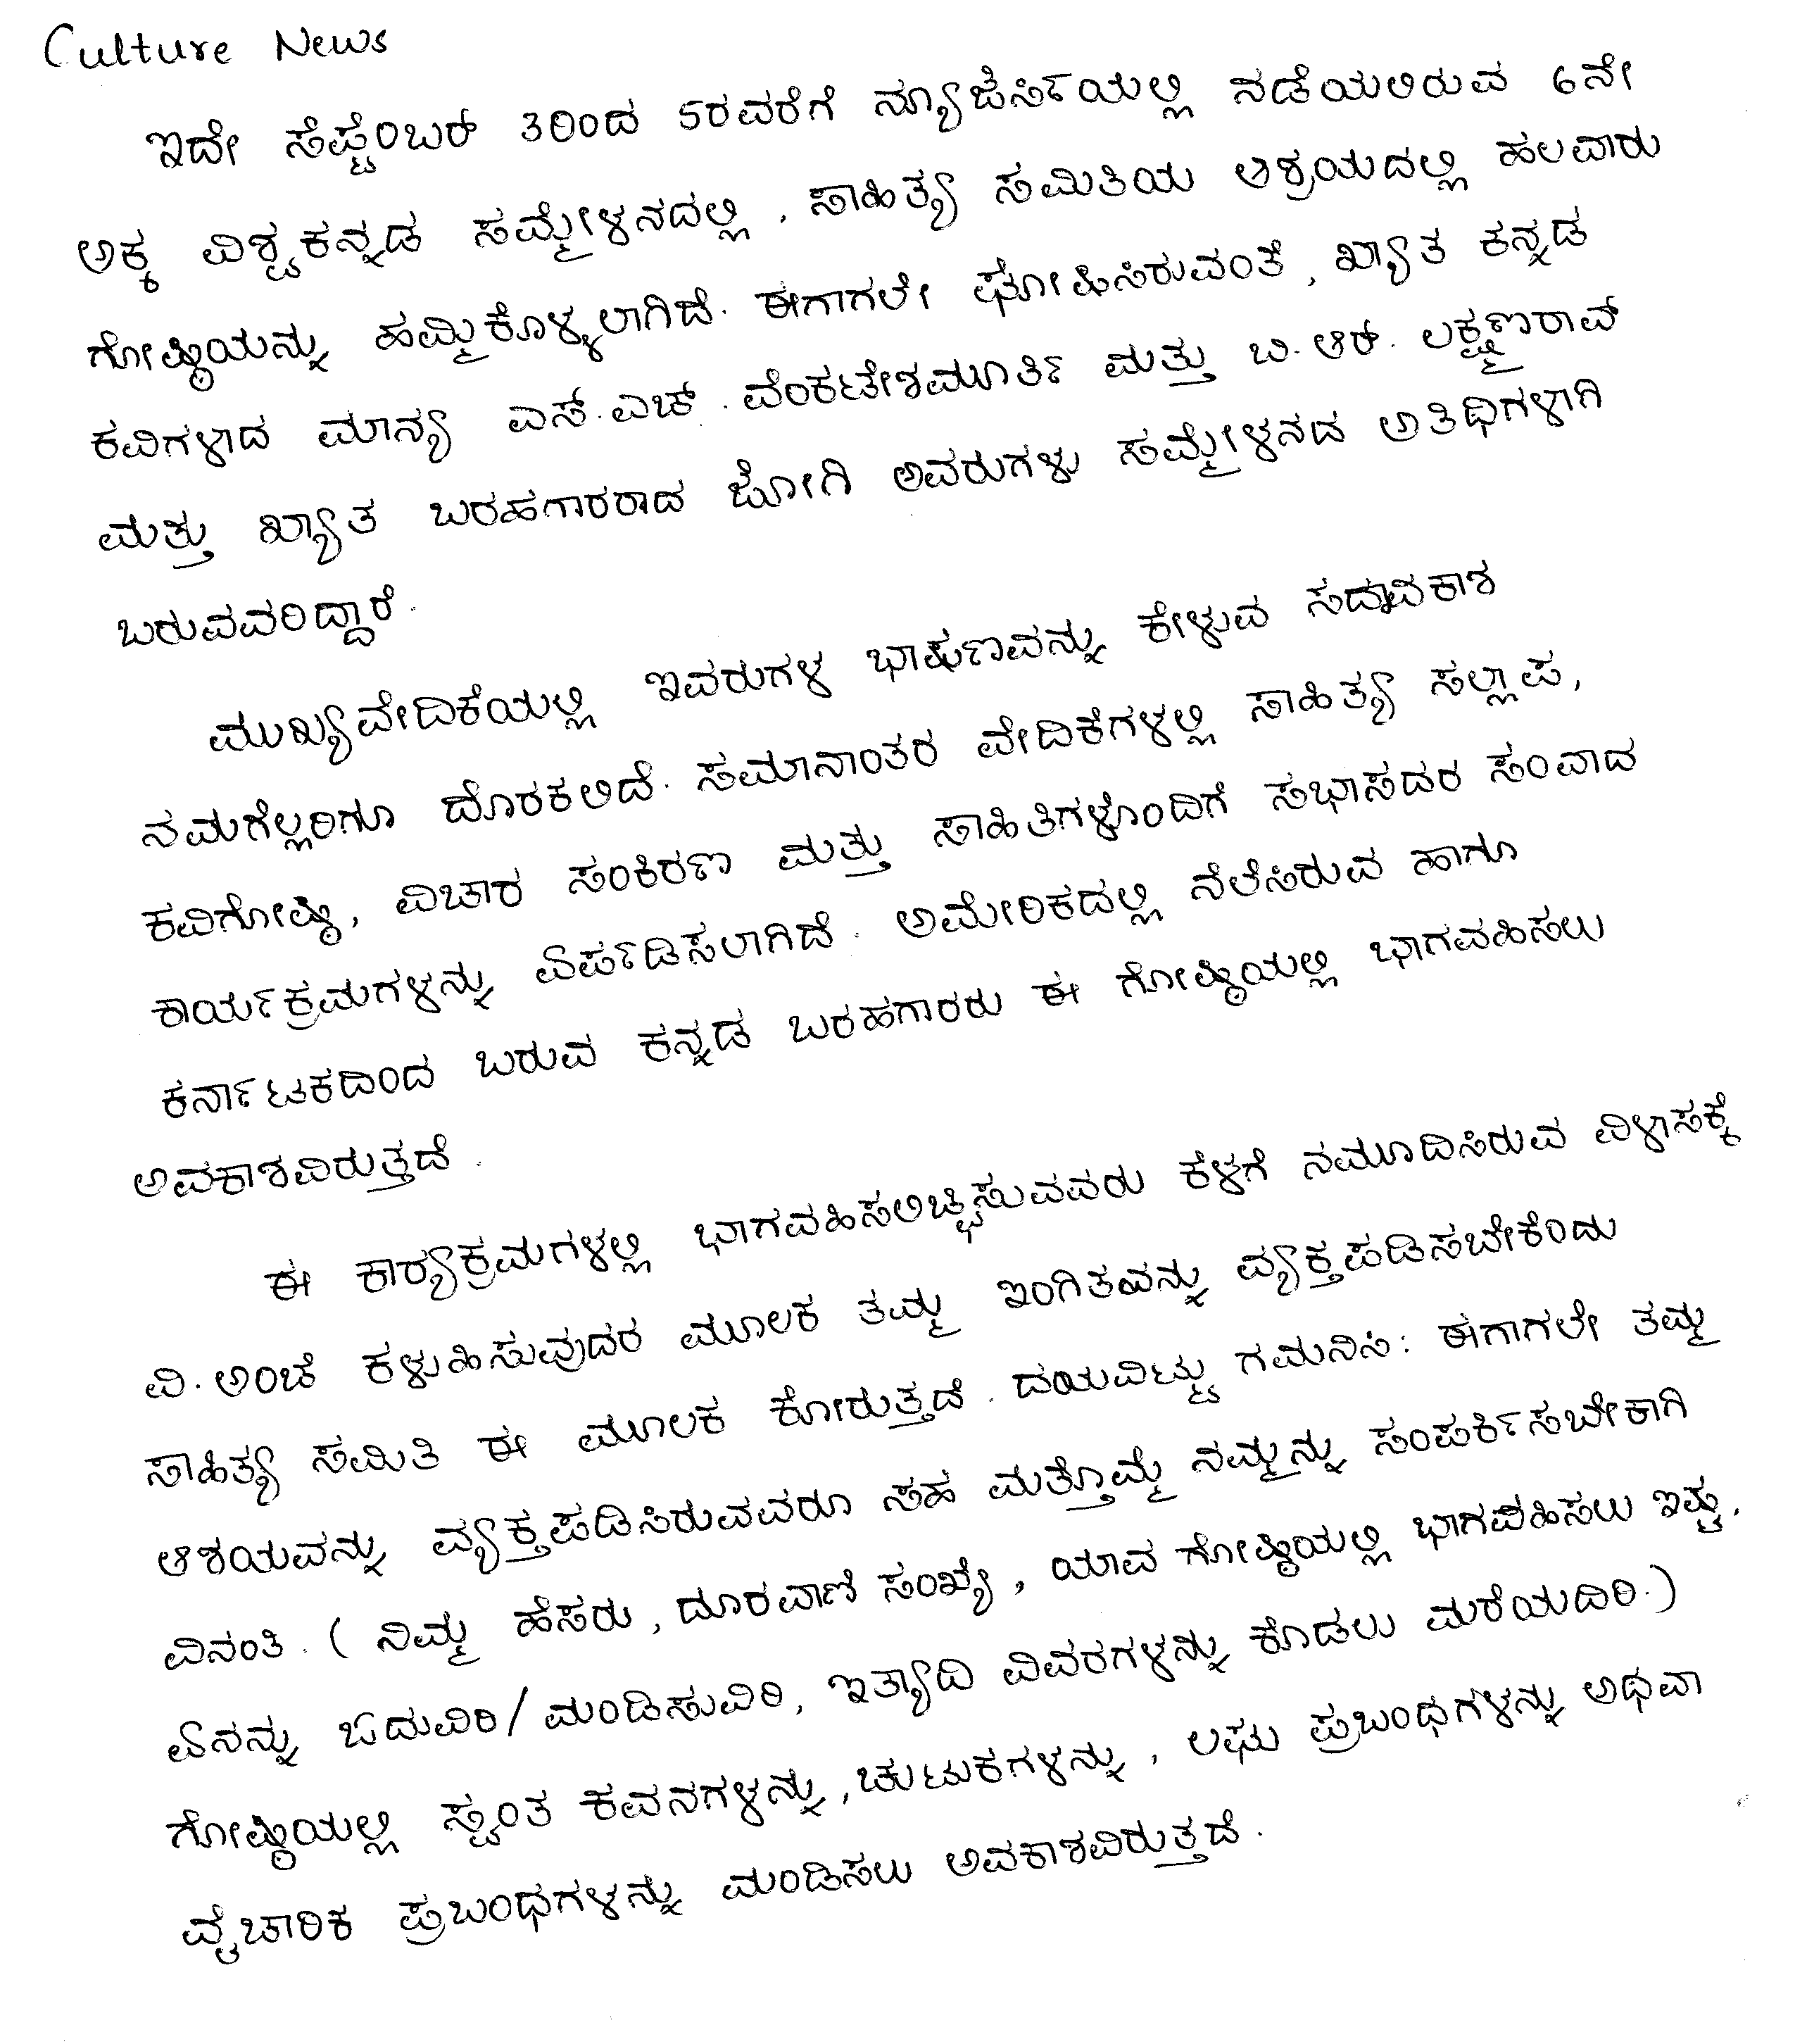 Culture News
ಇದೇ ಸೆಪ್ಟೆಂಬರ್ 3ರಿಂದ 5ರವರೆಗೆ ನ್ಯೂಜೆರ್ಸಿಯಲ್ಲಿ ನಡೆಯಲಿರುವ 6ನೇ
ಅಕ್ಕ ವಿಶ್ವಕನ್ನಡ ಸಮ್ಮೇಳನದಲ್ಲಿ, ಸಾಹಿತ್ಯ ಸಮಿತಿಯ ಆಶ್ರಯದಲ್ಲಿ ಹಲವಾರು
ಗೋಷ್ಠಿಯನ್ನು ಹಮ್ಮಿಕೊಳ್ಳಲಾಗಿದೆ. ಈಗಾಗಲೇ ಘೋಷಿಸಿರುವಂತೆ, ಖ್ಯಾತ ಕನ್ನಡ
ಕವಿಗಳಾದ ಮಾನ್ಯ ಎಸ್.ಎಚ್. ವೆಂಕಟೇಶಮೂರ್ತಿ ಮತ್ತು ಬಿ.ಆರ್. ಲಕ್ಷ್ಮಣರಾವ್
ಮತ್ತು ಖ್ಯಾತ ಬರಹಗಾರರಾದ ಜೋಗಿ ಅವರುಗಳು ಸಮ್ಮೇಳನದ ಅತಿಥಿಗಳಾಗಿ
ಬರುವವರಿದ್ದಾರೆ.
ಮುಖ್ಯವೇದಿಕೆಯಲ್ಲಿ ಇವರುಗಳ ಭಾಷಣವನ್ನು ಕೇಳುವ ಸದಾವಕಾಶ
ನಮಗೆಲ್ಲರಿಗೂ ದೊರಕಲಿದೆ. ಸಮಾನಾಂತರ ವೇದಿಕೆಗಳಲ್ಲಿ ಸಾಹಿತ್ಯ ಸಲ್ಲಾಪ,
ಕವಿಗೋಷ್ಠಿ, ವಿಚಾರ ಸಂಕಿರಣ ಮತ್ತು ಸಾಹಿತಿಗಳೊಂದಿಗೆ ಸಭಾಸದರ ಸಂವಾದ
ಕಾರ್ಯಕ್ರಮಗಳನ್ನು ಏರ್ಪಡಿಸಲಾಗಿದೆ. ಅಮೇರಿಕದಲ್ಲಿ ನೆಲೆಸಿರುವ ಹಾಗೂ
ಕರ್ನಾಟಕದಿಂದ ಬರುವ ಕನ್ನಡ ಬರಹಗಾರರು ಈ ಗೋಷ್ಠಿಯಲ್ಲಿ ಭಾಗವಹಿಸಲು
ಅವಕಾಶವಿರುತ್ತದೆ.
ಈ ಕಾರ‍್ಯಕ್ರಮಗಳಲ್ಲಿ ಭಾಗವಹಿಸಲಿಚ್ಛಿಸುವವರು ಕೆಳಗೆ ನಮೂದಿಸಿರುವ ವಿಳಾಸಕ್ಕೆ
ವಿ.ಅಂಚೆ ಕಳುಹಿಸುವುದರ ಮೂಲಕ ತಮ್ಮ ಇಂಗಿತವನ್ನು ವ್ಯಕ್ತಪಡಿಸಬೇಕೆಂದು
ಸಾಹಿತ್ಯ ಸಮಿತಿ ಈ ಮೂಲಕ ಕೋರುತ್ತದೆ. ದಯವಿಟ್ಟು ಗಮನಿಸಿ: ಈಗಾಗಲೇ ತಮ್ಮ
ಆಶಯವನ್ನು ವ್ಯಕ್ತಪಡಿಸಿರುವವರೂ ಸಹ ಮತ್ತೊಮ್ಮೆ ನಮ್ಮನ್ನು ಸಂಪರ್ಕಿಸಬೇಕಾಗಿ
ವಿನಂತಿ. ( ನಿಮ್ಮ ಹೆಸರು, ದೂರವಾಣಿ ಸಂಖ್ಯೆ, ಯಾವ ಗೋಷ್ಠಿಯಲ್ಲಿ ಭಾಗವಹಿಸಲು ಇಷ್ಟ,
ಏನನ್ನು ಓದುವಿರಿ/ಮಂಡಿಸುವಿರಿ, ಇತ್ಯಾದಿ ವಿವರಗಳನ್ನು ಕೊಡಲು ಮರೆಯದಿರಿ.)
ಗೋಷ್ಠಿಯಲ್ಲಿ ಸ್ವಂತ ಕವನಗಳನ್ನು, ಚುಟುಕಗಳನ್ನು, ಲಘು ಪ್ರಬಂಧಗಳನ್ನು ಅಥವಾ
ವೈಚಾರಿಕ ಪ್ರಬಂಧಗಳನ್ನು ಮಂಡಿಸಲು ಅವಕಾಶವಿರುತ್ತದೆ.